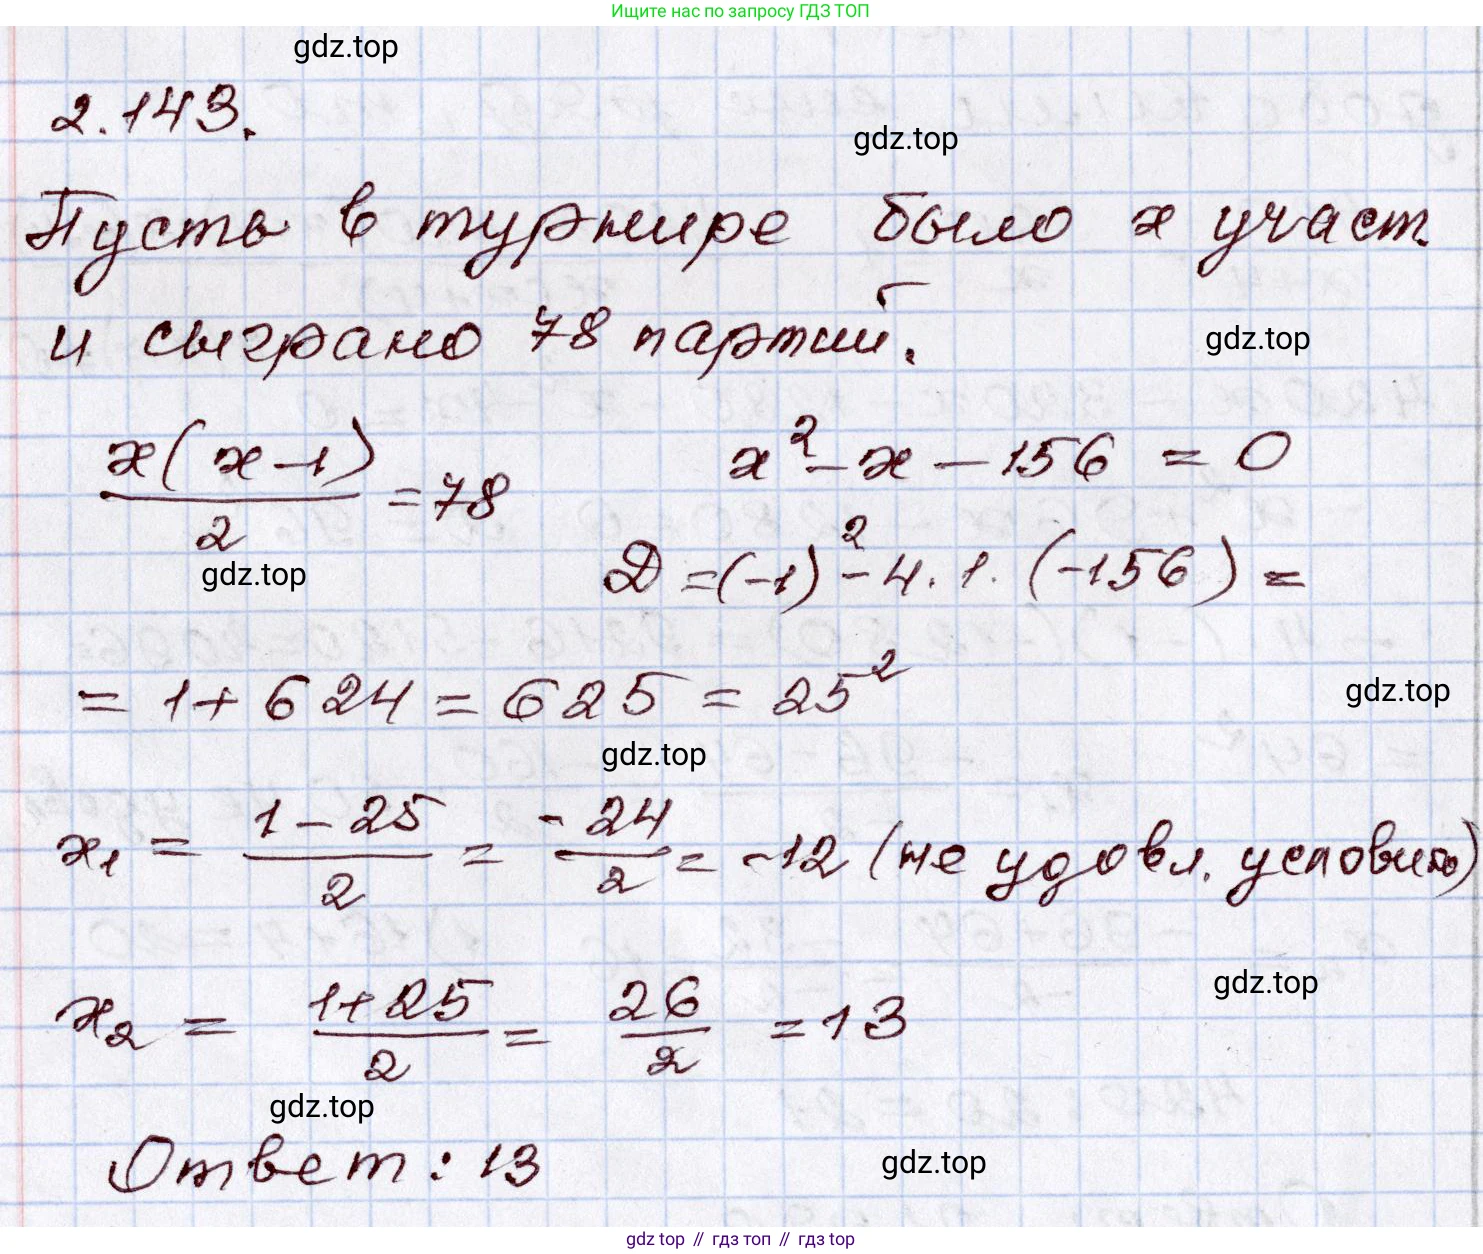 Ищите нас по запросу ГДЗ ТОП
gdz.top
2.143.
gdz.top
Пусть в турнире было x участ.
и сыграно 78 партий.
gdz.top
x(x-1)/2 = 78
x² - x - 156 = 0
gdz.top
D = (-1)² - 4 · 1 · (-156) =
= 1 + 624 = 625 = 25²
gdz.top
gdz.top
x₁ = (1-25)/2 = -24/2 = -12 (не удовл. условию)
x₂ = (1+25)/2 = 26/2 = 13
gdz.top
gdz.top
Ответ: 13
gdz.top
gdz top // гдз топ // гдз top